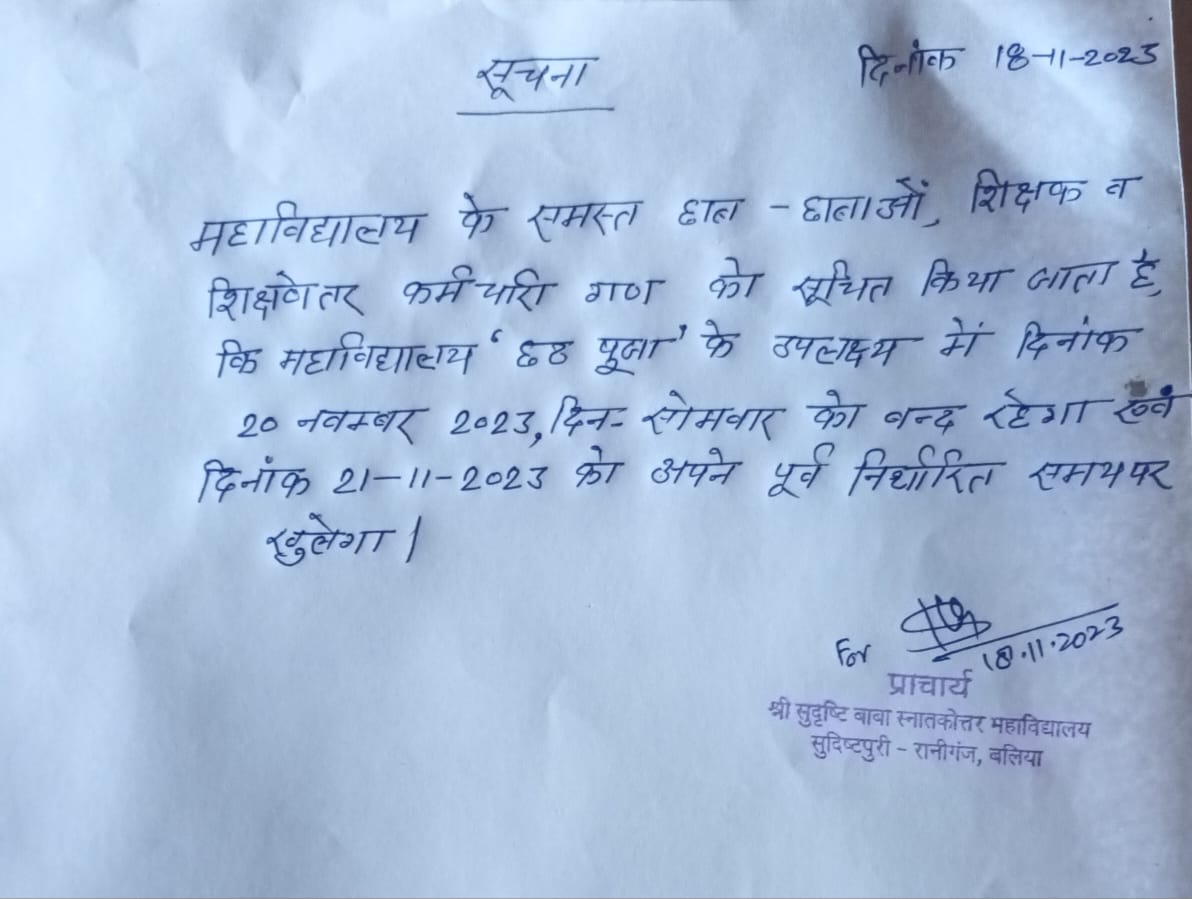 सूचना
दिनांक 18-11-2023
महाविद्यालय के समस्त छात्र - छात्राओं, शिक्षक व
शिक्षणेतर कर्मचारी गण को सूचित किया जाता है,
कि महाविद्यालय 'छठ पूजा' के उपलक्ष्य में दिनांक
20 नवम्बर 2023, दिन- सोमवार को बन्द रहेगा एवं
दिनांक 21-11-2023 को अपने पूर्व निर्धारित समय पर
खुलेगा।
For
18.11.2023
प्राचार्य
श्री सुदृष्टि बाबा स्नातकोत्तर महाविद्यालय
सुदिष्टपुरी - रानीगंज, बलिया